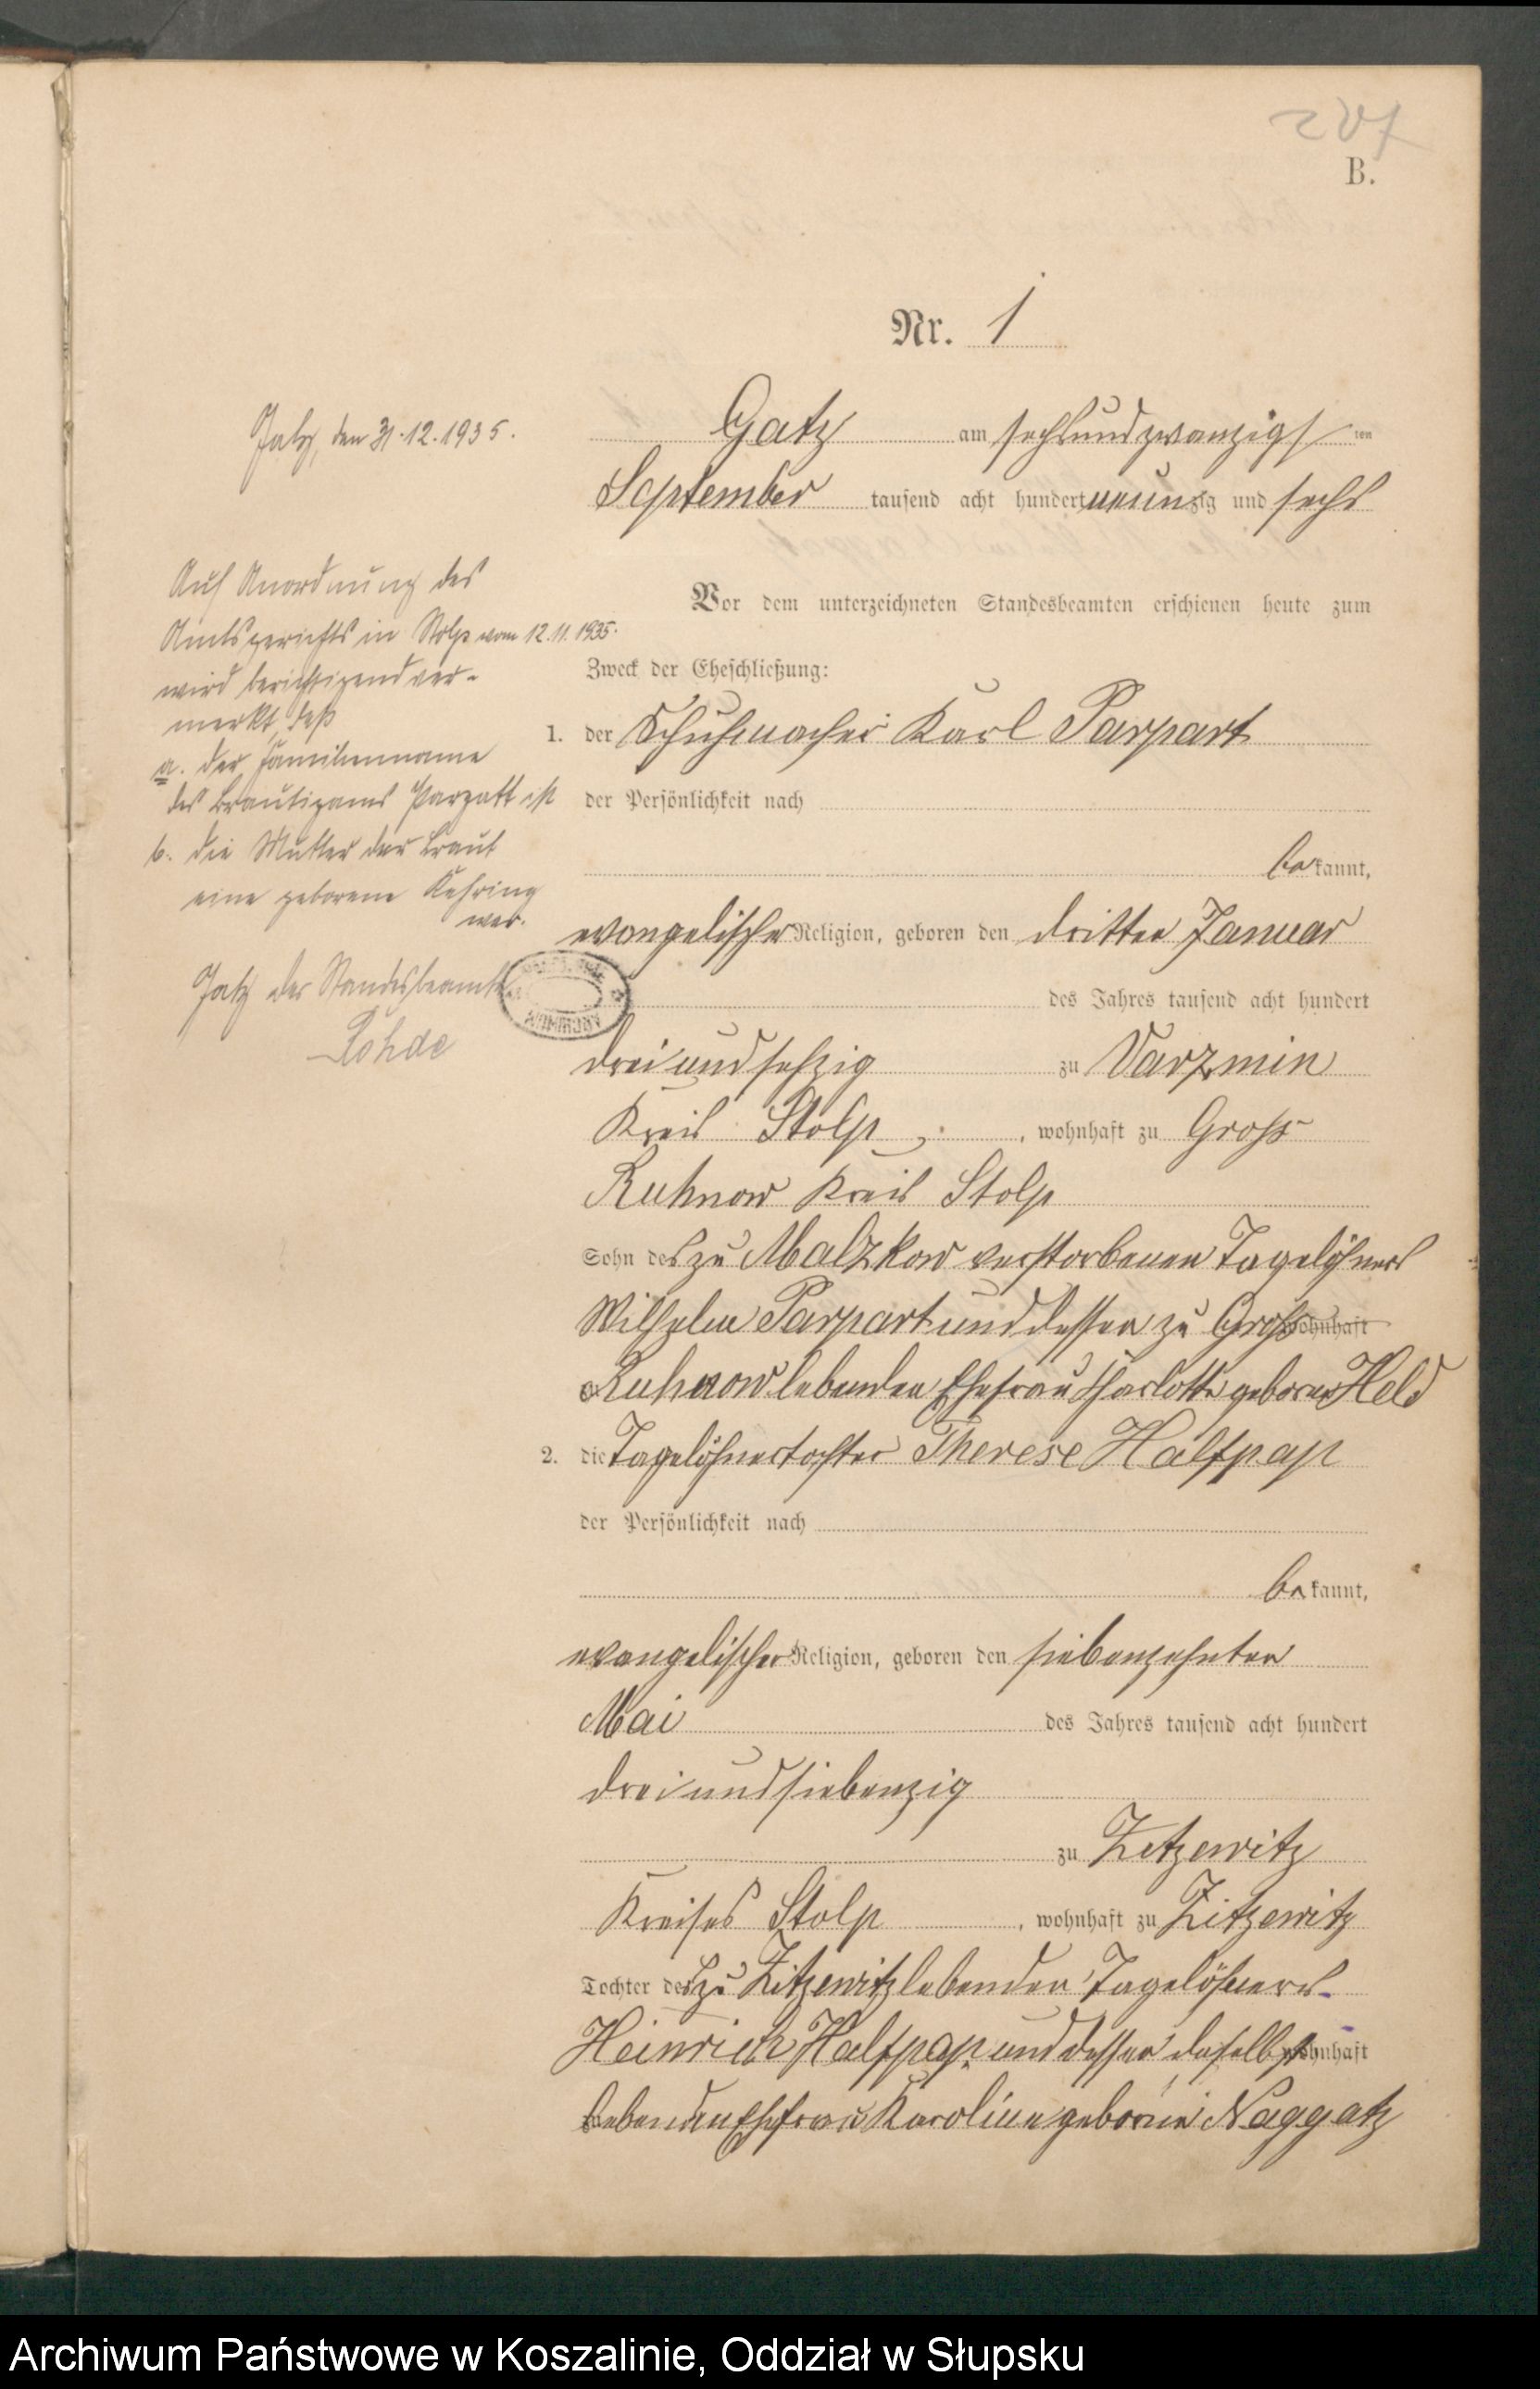 207
B.
Nr. 1
Gatz am sechsundzwanzigsten
September tausend acht hundert neunzig und sechs
Vor dem unterzeichneten Standesbeamten erschienen heute zum
Zweck der Eheschließung:
1. der Schuhmacher Karl Parpart
der Persönlichkeit nach
bekannt,
evangelischer Religion, geboren den dritten Januar
des Jahres tausend acht hundert
dreiundsechzig zu Varzmin
Kreis Stolp, wohnhaft zu Gross
Ruhnow Kreis Stolp
Sohn des zu Malzkow verstorbenen Tagelöhners
Wilhelm Parpart und dessen zu Gross wohnhaft
Ruhnow lebenden Ehefrau Charlotte geborne Held
2. die Tagelöhnertochter Therese Halfpap
der Persönlichkeit nach
bekannt,
evangelischer Religion, geboren den siebenzehnten
Mai des Jahres tausend acht hundert
dreiundsiebenzig
zu Zetzewitz
Kreises Stolp, wohnhaft zu Zitzewitz
Tochter des zu Zitzewitz lebenden Tagelöhners
Heinrich Halfpap und dessen daselbst wohnhaft
lebenden Ehefrau Karoline geborne Naggatz
Gatz, den 31.12.1935.
Auf Anordnung des
Amtsgerichts in Stolp vom 12.11.1935.
wird berichtigend ver-
merkt, daß
a. der Familienname
des Bräutigams Parpatt ist
b. die Mutter der Braut
eine geborene Kehring
war.
Gatz der Standesbeamte
Rohde
Archiwum Państwowe w Koszalinie, Oddział w Słupsku